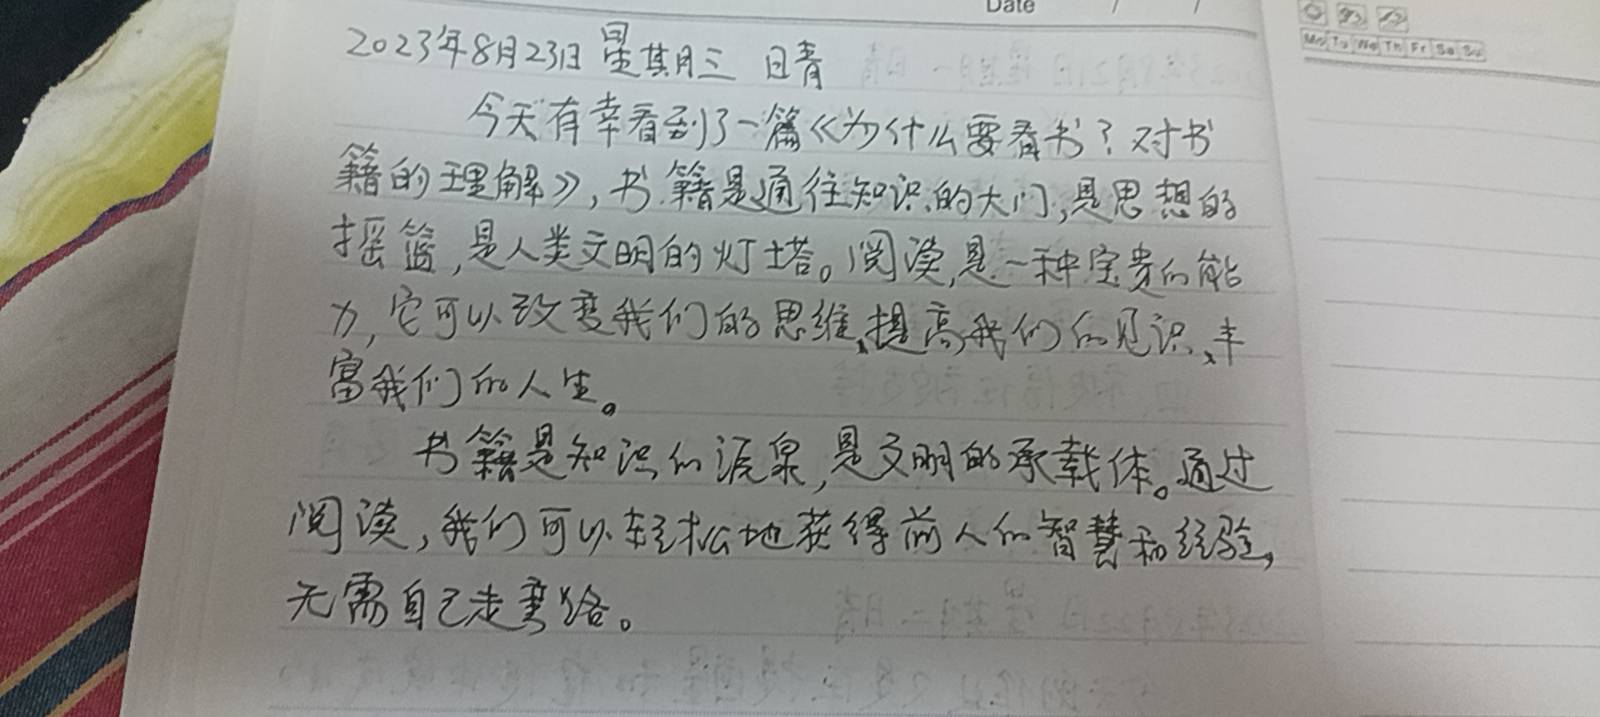 Date / /
Mo Tu We Th Fr Sa Su
2023年8月23日 星期三 晴
今天有幸看到了一篇《为什么要看书？对书
籍的理解》，书籍是通往知识的大门，是思想的
摇篮，是人类文明的灯塔。阅读，是一种宝贵的能
力，它可以改变我们的思维、提高我们的见识、丰
富我们的人生。
书籍是知识的源泉，是文明的承载体。通过
阅读，我们可以轻松地获得前人的智慧和经验，
无需自己走弯路。